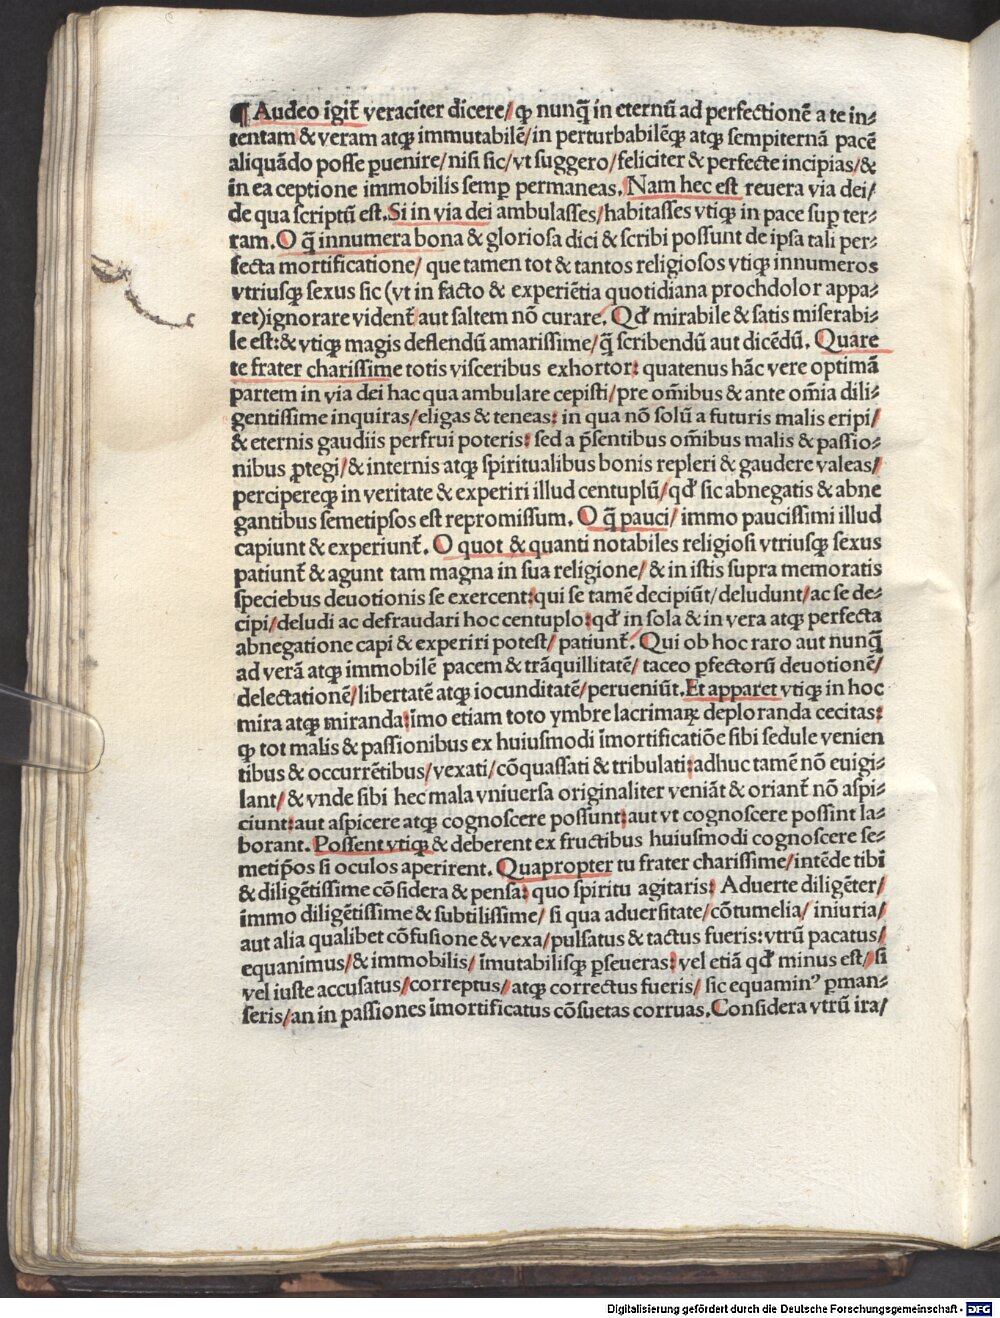 ¶ Audeo igit̃ veraciter dicere/ ꝙ nunq̃ in eternũ ad perfectionẽ a te in⸗
tentam & veram atqꝫ immutabilẽ/ in perturbabilẽqꝫ atqꝫ sempiternã pacẽ
aliquãdo posse ꝑuenire/ nisi sic/ vt suggero/ feliciter & perfecte incipias/ &
in ea ceptione immobilis semꝑ permaneas. Nam hec est reuera via dei/
de qua scriptũ est. Si in via dei ambulasses/ habitasses vtiqꝫ in pace suꝑ ter⸗
ram. O q̃ innumera bona & gloriosa dici & scribi possunt de ipsa tali per⸗
fecta mortificatione/ que tamen tot & tantos religiosos vtiqꝫ innumeros
vtriusqꝫ sexus sic (vt in facto & experiẽtia quotidiana prochdolor appa⸗
ret) ignorare vident̃ aut saltem nõ curare. Qd' mirabile & satis miserabi⸗
le est: & vtiqꝫ magis deflendũ amarissime/ q̃ scribendũ aut dicẽdũ. Quare
te frater charissime totis visceribus exhortor: quatenus hãc vere optimã
partem in via dei hac qua ambulare cepisti/ pre om̃ibus & ante om̃ia dili⸗
gentissime inquiras/ eligas & teneas: in qua nõ solũ a futuris malis eripi/
& eternis gaudiis perfrui poteris: sed a p̃sentibus om̃ibus malis & passio⸗
nibus ꝓtegi/ & internis atqꝫ spiritualibus bonis repleri & gaudere valeas/
percipereqꝫ in veritate & experiri illud centuplũ/ qd' sic abnegatis & abne
gantibus semetipsos est repromissum. O q̃ pauci/ immo paucissimi illud
capiunt & experiunt̃. O quot & quanti notabiles religiosi vtriusqꝫ sexus
patiunt̃ & agunt tam magna in sua religione/ & in istis supra memoratis
speciebus deuotionis se exercent: qui se tamẽ decipiũt/ deludunt/ ac se de⸗
cipi/ deludi ac defraudari hoc centuplo: qd' in sola & in vera atqꝫ perfecta
abnegatione capi & experiri potest/ patiunt̃. Qui ob hoc raro aut nunq̃
ad verã atqꝫ immobilẽ pacem & trãquillitatẽ/ taceo ꝑfectorũ deuotionẽ/
delectationẽ/ libertatẽ atqꝫ iocunditatẽ/ perueniũt. Et apparet vtiqꝫ in hoc
mira atqꝫ miranda: ĩmo etiam toto ymbre lacrimaꝝ deploranda cecitas:
ꝙ tot malis & passionibus ex huiusmodi ĩmortificatiõe sibi sedule venien
tibus & occurrẽtibus/ vexati/ cõquassati & tribulati: adhuc tamẽ nõ euigi⸗
lant/ & vnde sibi hec mala vniuersa originaliter veniãt & oriant̃ nõ aspi⸗
ciunt: aut aspicere atqꝫ cognoscere possunt: aut vt cognoscere possint la⸗
borant. Possent vtiqꝫ & deberent ex fructibus huiusmodi cognoscere se⸗
metip̃os si oculos aperirent. Quapropter tu frater charissime/ intẽde tibi
& diligẽtissime cõsidera & pensa: quo spiritu agitaris: Aduerte diligẽter/
ĩmmo diligẽtissime & subtilissime/ si qua aduersitate/ cõtumelia/ iniuria/
aut alia qualibet cõfusione & vexa/ pulsatus & tactus fueris: vtrũ pacatus/
equanimus/ & immobilis/ ĩmutabilisqꝫ ꝑseueras: vel etiã qd' minus est/ si
vel iuste accusatus/ correptus/ atqꝫ correctus fueris/ sic equaminꝰ ꝑman⸗
seris/ an in passiones ĩmortificatus cõsuetas corruas. Considera vtrũ ira/
Digitalisierung gefördert durch die Deutsche Forschungsgemeinschaft - DFG